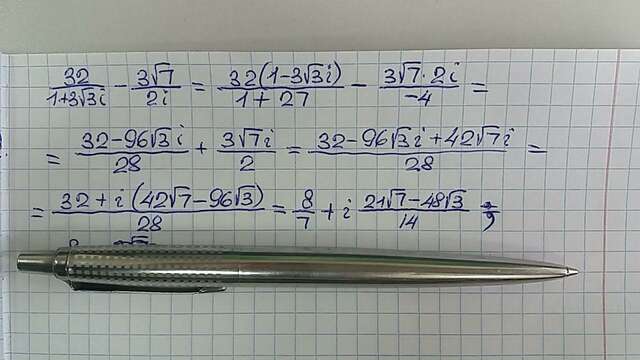 32/(1+3√3i) - 3√7/(2i) = 32(1-3√3i)/(1+27) - 3√7·2i/(-4) =
= (32-96√3i)/28 + 3√7i/2 = (32-96√3i+42√7i)/28 =
= (32+i(42√7-96√3))/28 = 8/7 + i (21√7-48√3)/14